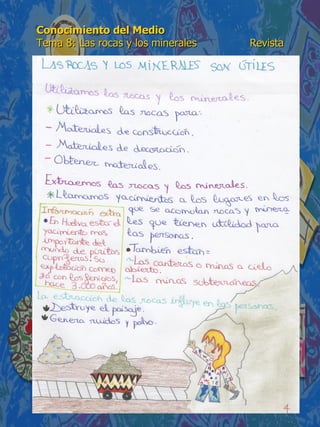 Conocimiento del Medio
Tema 8: Las rocas y los minerales Revista
LAS ROCAS Y LOS MINERALES SON ÚTILES
Utilizamos las rocas y los minerales.
* Utilizamos las rocas para:
- Materiales de construcción.
- Materiales de decoración.
- Obtener materiales.
Extraemos las rocas y los minerales.
* Llamamos yacimientos a los lugares en los
que se acomolan rocas y minera
les que tienen utilidad para
las personas.
Información extra
• En Huelva esta el
yacimiento mas
importante del
mundo de piritas
cupriferas. Su
explotación comen
zó con los fenicios,
hace 3.000 años.
• También estan:
~ Las canteras o minas a cielo
abierto.
~ Las minas subterráneas.
La estracción de las rocas influye en las personas.
Destruye el paisaje.
Genera ruidos y polvo.
4